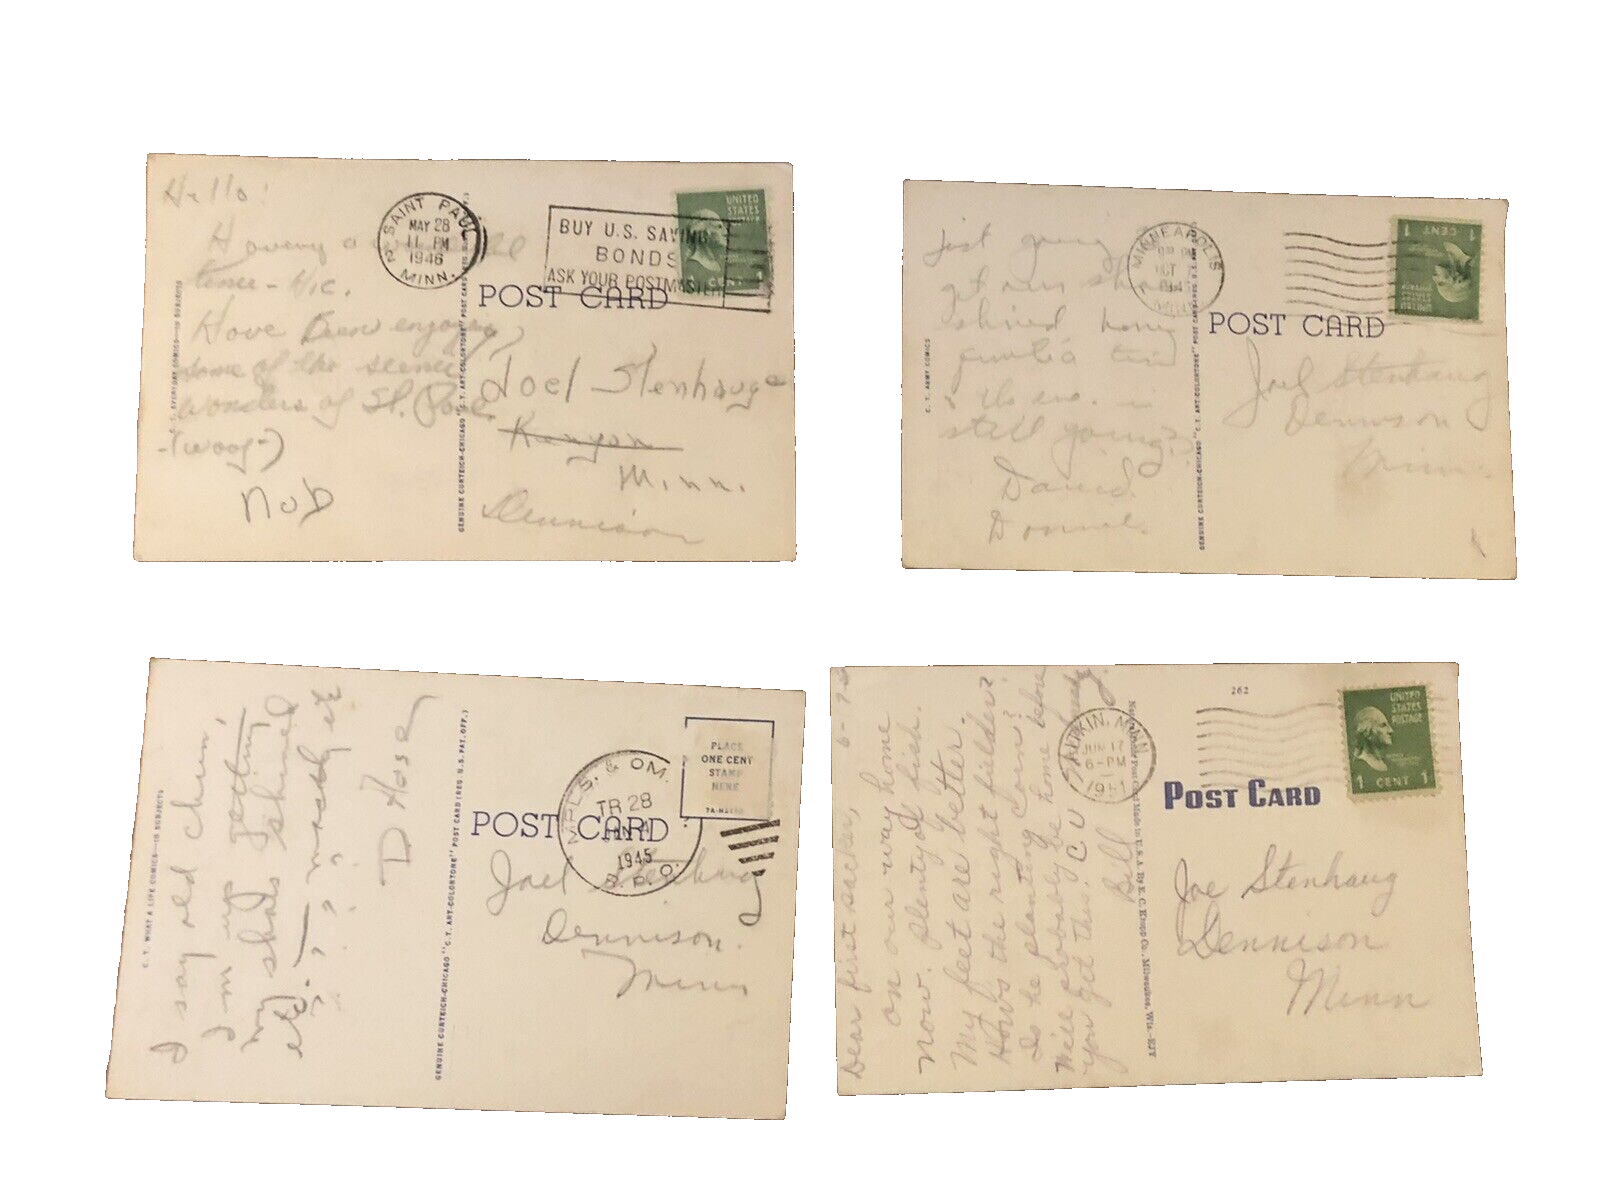 Hello!
Having a
time - Hic.
Have Been enjoying
some of the scenic
wonders of St. Paul
Nob
C.T. EVERYDAY COMICS—10 SUBJECTS
GENUINE CURTEICH-CHICAGO "C.T. ART-COLORTONE" POST CARD (REG. U.S. PAT. OFF.)
SAINT PAUL
MAY 28
11 PM
1946
MINN.
2
BUY U.S. SAVINGS
BONDS
ASK YOUR POSTMASTER
UNITED
STATES
POSTAGE
1 CENT 1
POST CARD
Joel Stenhauge
Kenyon
Minn.
Dennison
just going
get our shoes
shined
still going
David
Donnie.
C.T. ARMY COMICS
GENUINE CURTEICH-CHICAGO "C.T. ART-COLORTONE" POST CARD (REG. U.S. PAT. OFF.)
MINNEAPOLIS
OCT
1 CENT 1
POST CARD
Joel Stenhaug
Dennison
Minn.
I say old chum,
I'm up getting
my shoes shined
etc.
D Hosen
C.T. WHAT A LIFE COMICS—10 SUBJECTS
GENUINE CURTEICH-CHICAGO "C.T. ART-COLORTONE" POST CARD (REG. U.S. PAT. OFF.)
MPLS. & OM.
TR 28
JAN 4
1945
R.P.O.
PLACE
ONE CENT
STAMP
HERE
POST CARD
Joel Stenhaug
Dennison.
Minn
Dear first sacker,
on our way home
now. Plenty of fish.
My feet are better.
Hows the right fielder?
Is he planting corn?
Will probably be home before
you get this. C U
Bill
262
AITKIN, MINN
JUN 17
6-PM
UNITED
STATES
POSTAGE
1 CENT 1
POST CARD
Made in U.S.A. By E. C. Kropp Co., Milwaukee, Wis.
Joe Stenhaug
Dennison
Minn